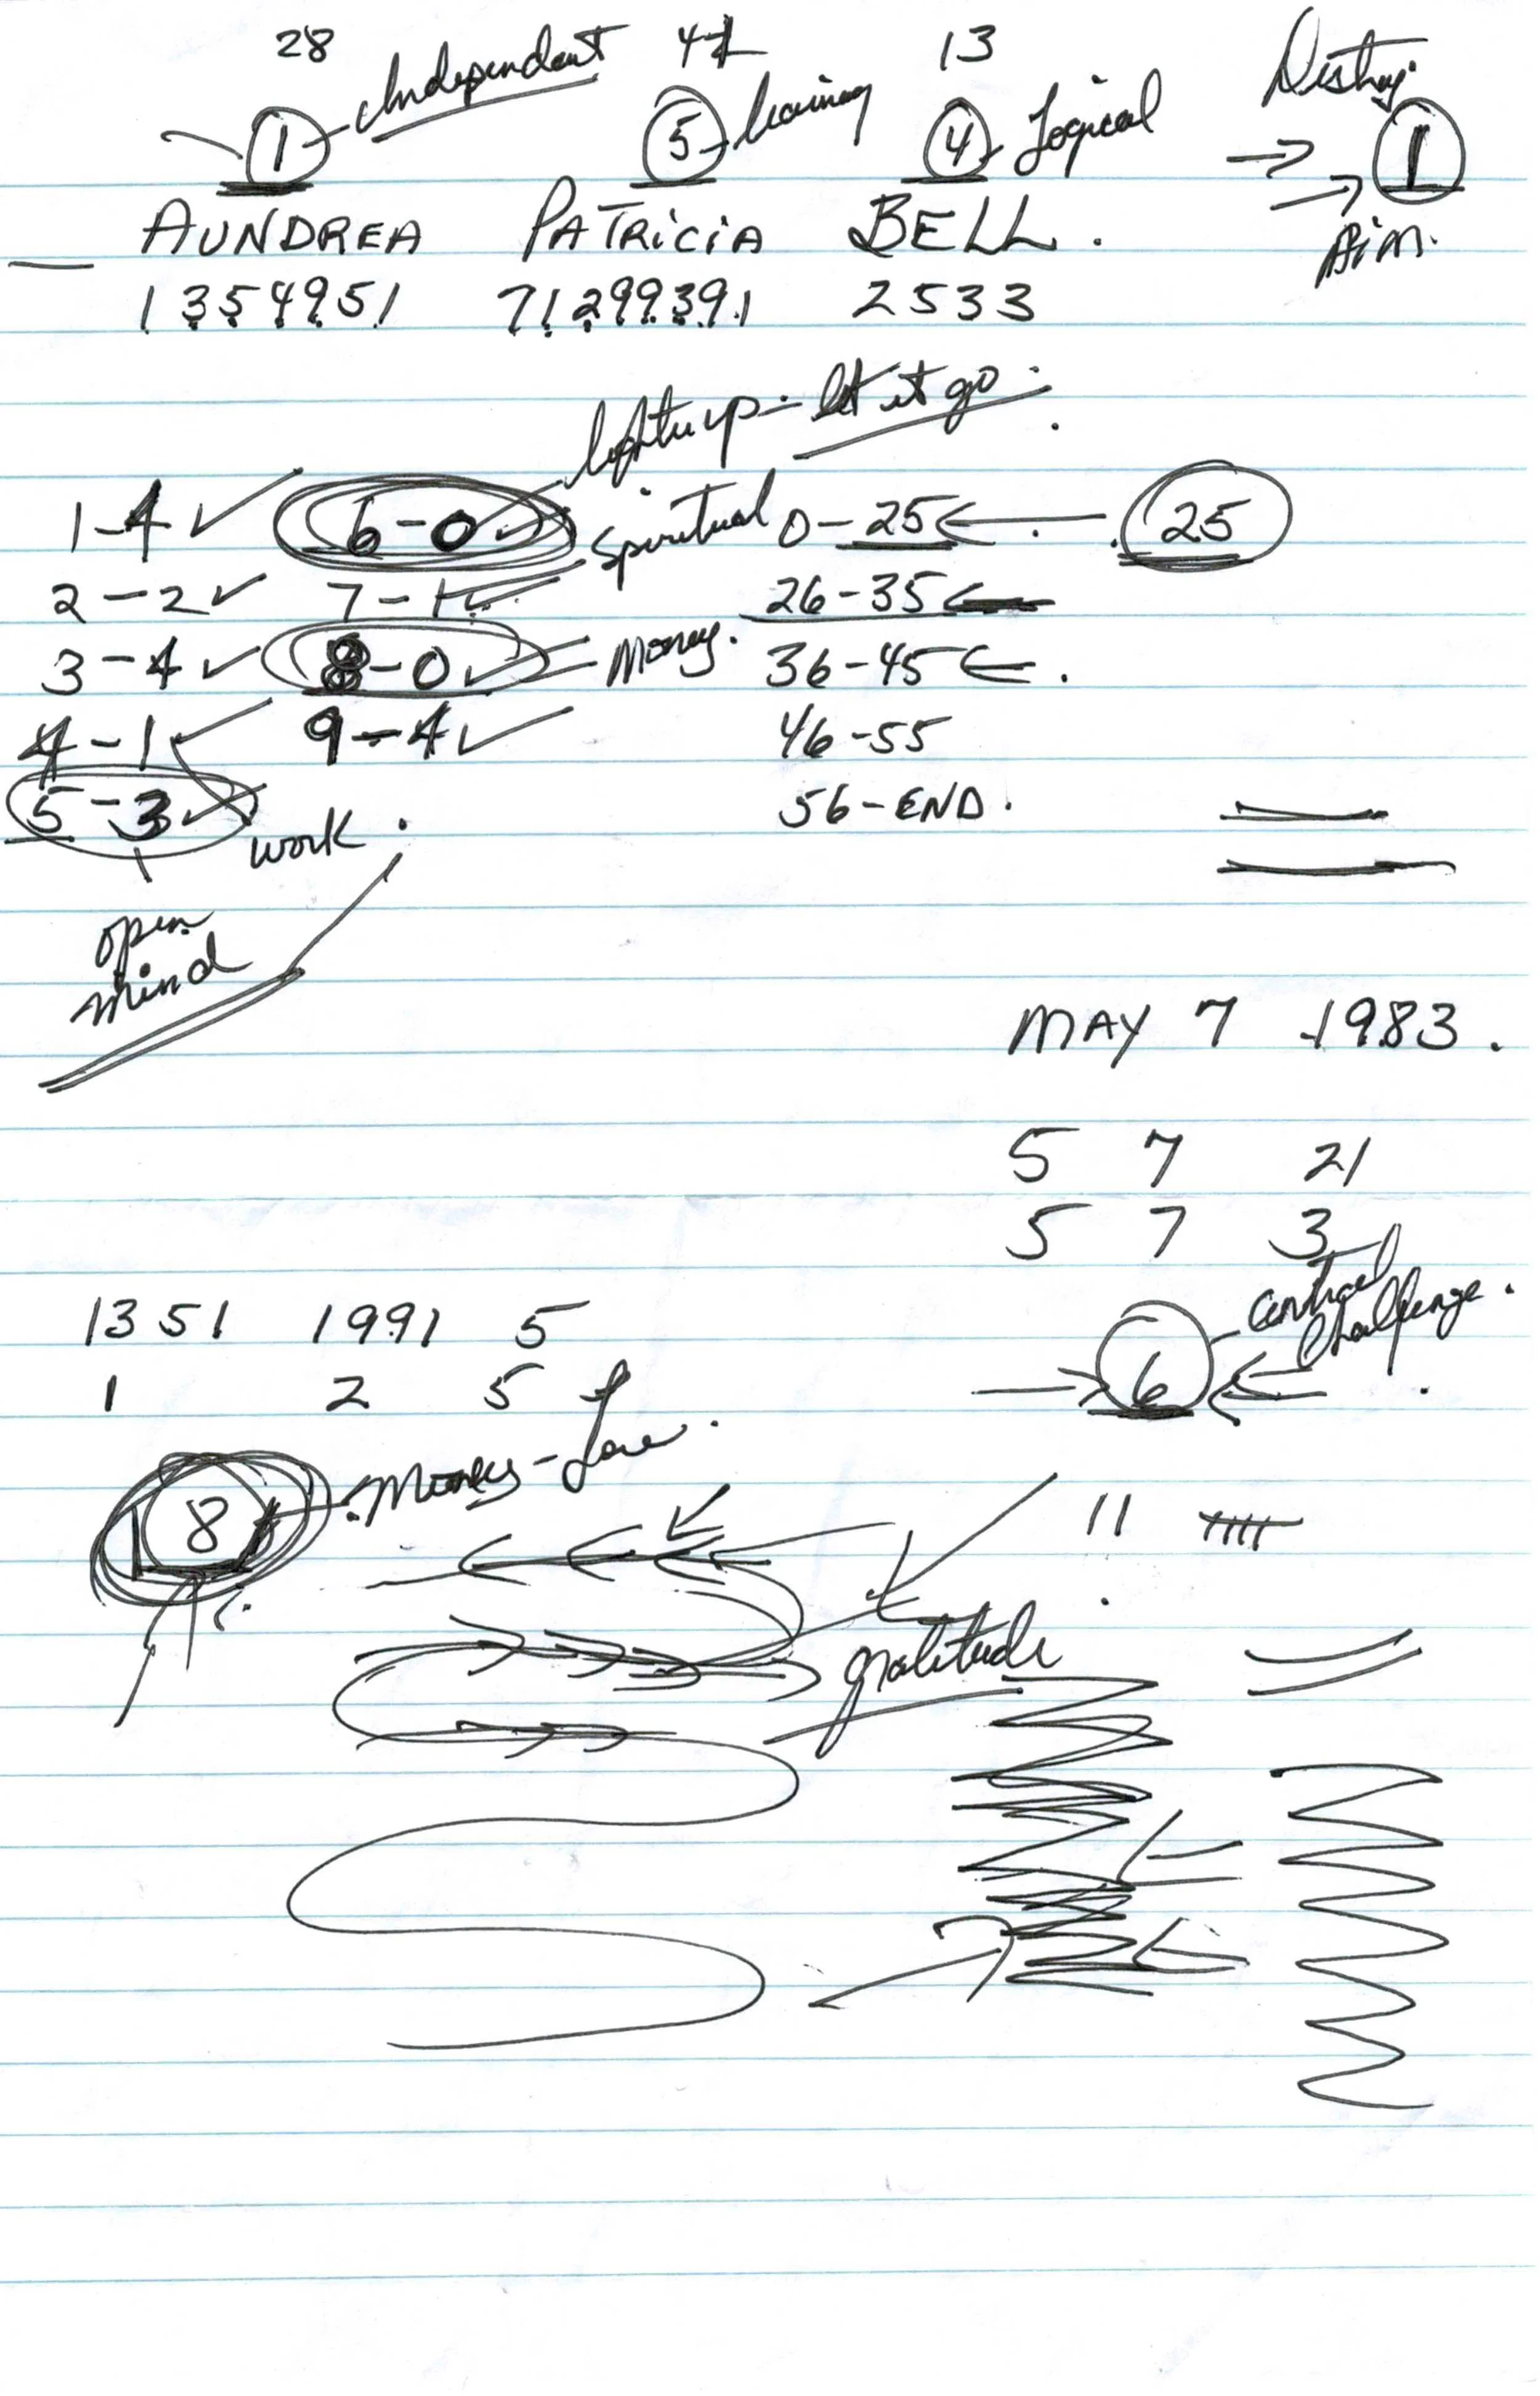 28 41 13 Destiny.
1 - Independent 5 - learning 4 - Logical → 1
AUNDREA PATRICIA BELL. Aim.
1354951 71299391 2533
lighten up - let it go.
1-4 ✓ 6-0 ✓ Spiritual 0-25 ← 25
2-2 ✓ 7-1 ✓ 26-35 ←
3-4 ✓ 8-0 ✓ Money. 36-45 ←
4-1 ✓ 9-4 ✓ 46-55
5-3 ✓ work. 56-END.
open
mind
MAY 7 1983.
5 7 21
5 7 3
central
challenge.
1351 1991 5
1 2 5
6
8 - Money - Love.
11
gratitude